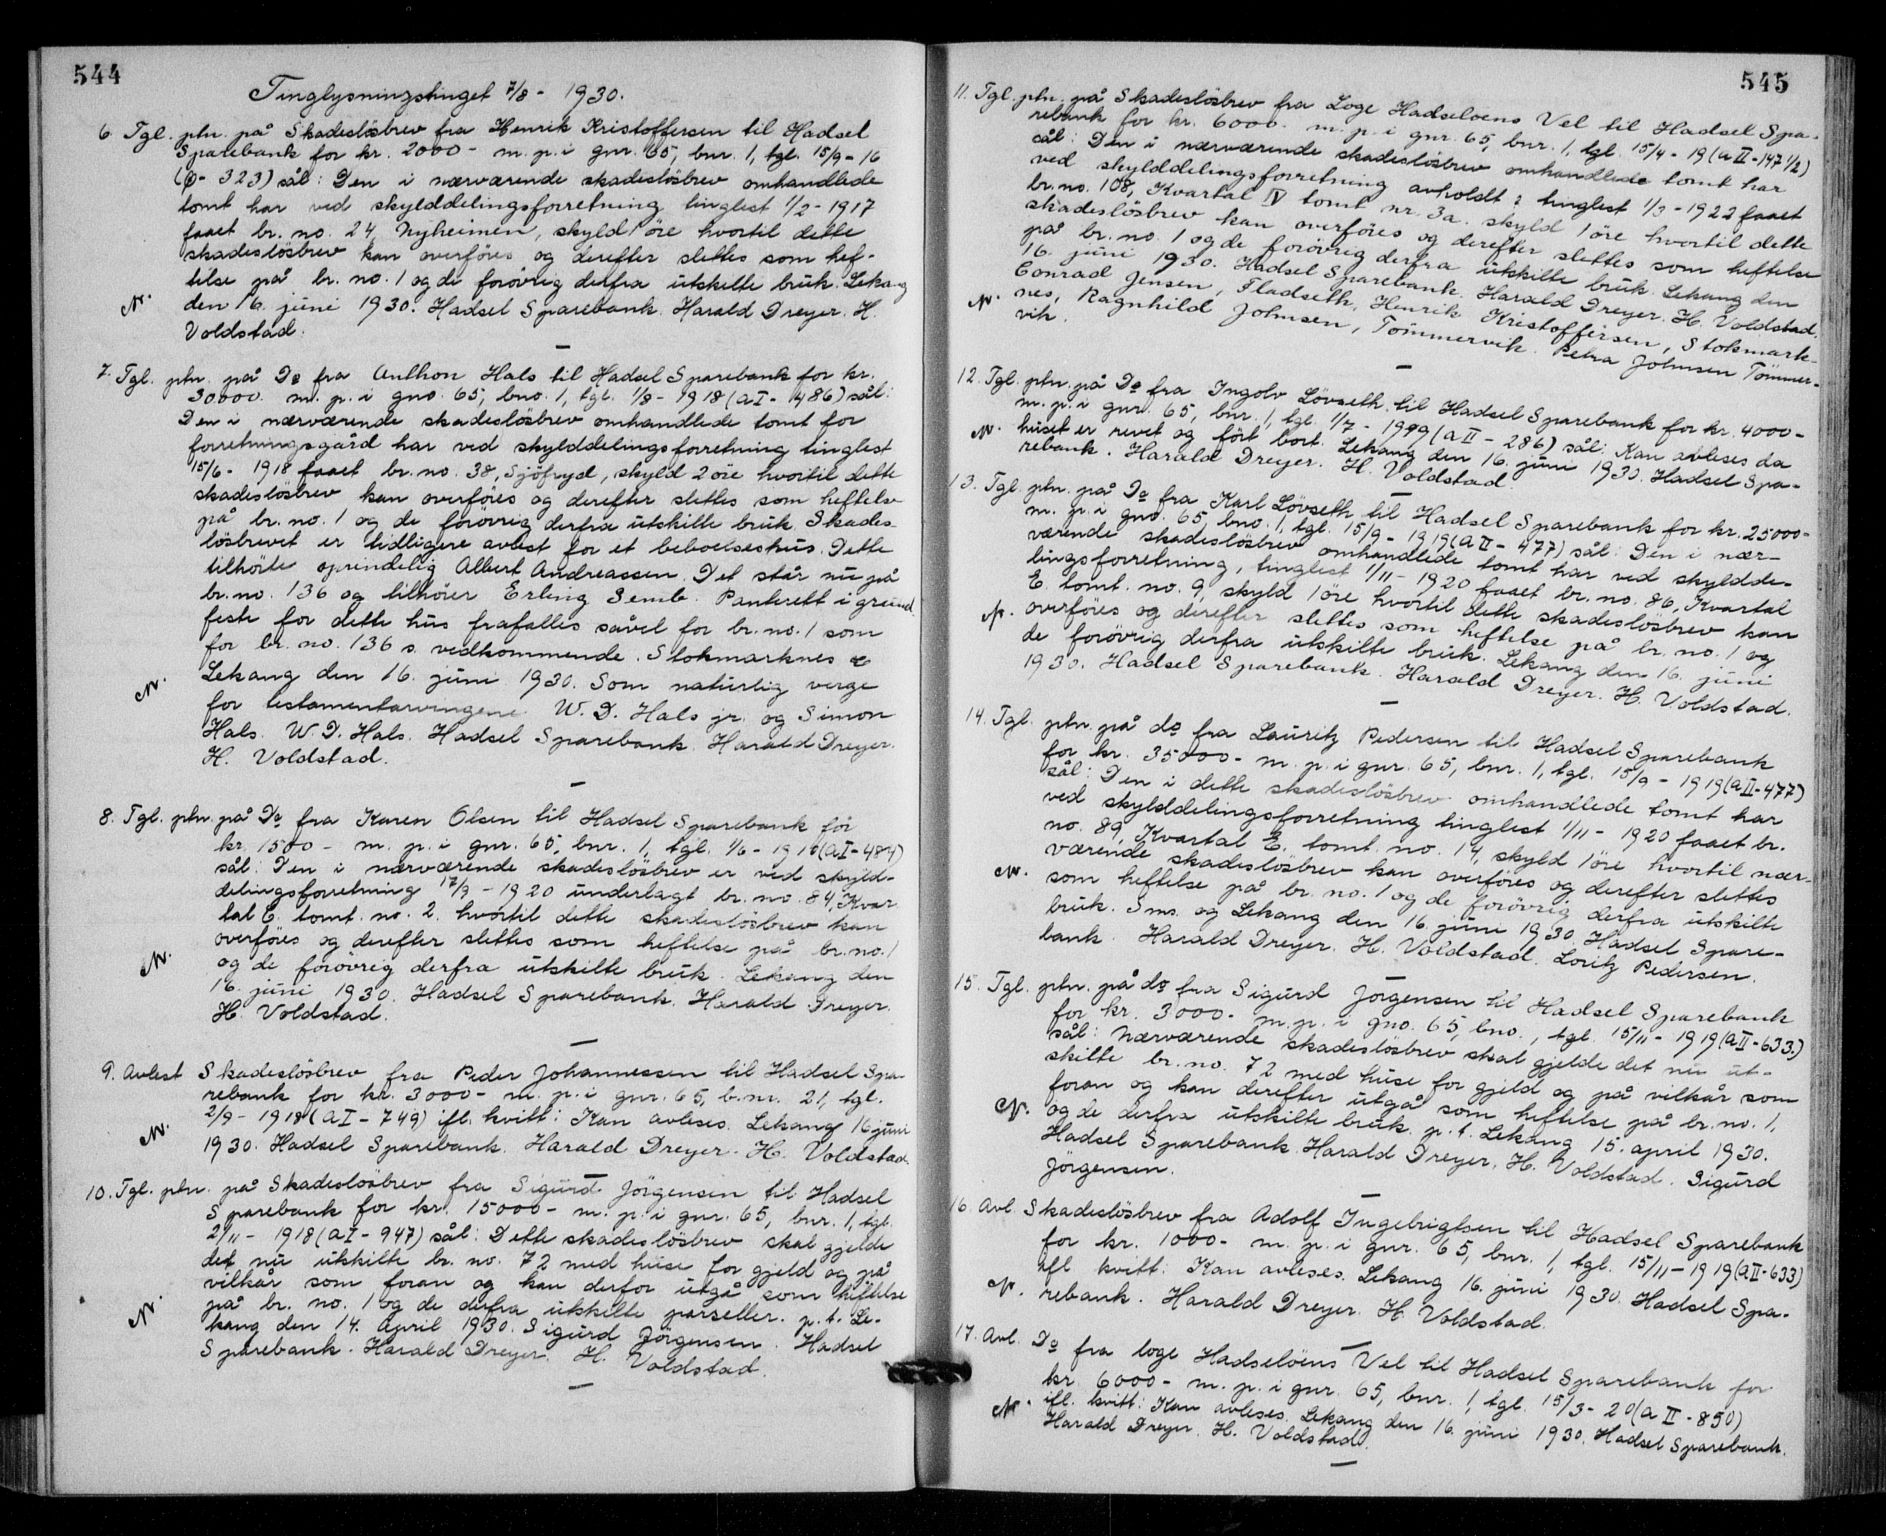 544
Tinglysningstinget 7/8 - 1930.
6. Tgl. ptn. på Skadeslösbrev fra Henrik Kristoffersen til Hadsel
Sparebank for kr. 2000 - m. p. i gnr. 65, bnr. 1, tgl. 15/9 - 16
( - 323) sål: Den i nærværende skadeslösbrev omhandlede
tomt har ved skylddelingsforretning tinglest 1/2 - 1917
faaet br. no. 24, Nyheimen, skyld 1 öre hvortil dette
skadeslösbrev kan overföres og derefter slettes som hef-
telse på br. no. 1 og de forövrig derfra utskilte bruk. Lekang
den 16. juni 1930. Hadsel Sparebank. Harald Dreyer. H.
Voldstad.
7. Tgl. ptn. på Do fra Anthon Hals til Hadsel Sparebank for kr.
30000. m. p. i gno. 65, bno. 1, tgl. 1/8 - 1918 (A I - 486) sål:
Den i nærværende skadeslösbrev omhandlede tomt for
forretningsgård har ved skylddelingsforretning tinglest
15/6 - 1918 faaet br. no. 38, Sjöfryd, skyld 2 öre hvortil dette
skadeslösbrev kan overföres og derefter slettes som heftelse
på br. no. 1 og de forövrig derfra utskilte bruk. Skades-
lösbrevet er tidligere avlest for et beboelseshus. Dette
tilhörte oprindelig Albert Andreassen. Det står nu på
br. no. 136 og tilhörer Erling Semb. Panterett i grund
feste for dette hus frafalles såvel for br. no. 1 som
for br. no. 136 s. vedkommende. Stokmarknes &
Lekang den 16. juni 1930. Som naturlig verge
for testamentarvingene W. D. Hals jr. og Simon
Hals. W. D. Hals. Hadsel Sparebank. Harald Dreyer.
H. Voldstad.
8. Tgl. ptn. på Do fra Karen Olsen til Hadsel Sparebank for
kr. 1500 - m. p. i gnr. 65, bnr. 1, tgl. 1/6 - 1918 (A I - 484)
sål: Den i nærværende skadeslösbrev er ved skyld-
delingsforretning 17/9 - 1920 underlagt br. no. 84, Kvar
tal E. tomt. no. 2. hvortil dette skadeslösbrev kan
overföres og derefter slettes som heftelse på br. no. 1
og de forövrig derfra utskilte bruk. Lekang den
16. juni 1930. Hadsel Sparebank. Harald Dreyer.
H. Voldstad.
9. Avlest Skadeslösbrev fra Peder Johannessen til Hadsel Spa-
rebank for kr. 3000 - m. p. i gnr. 65, b. nr. 21, tgl.
2/9 - 1918 (A I - 749) ifl. kvitt: Kan avleses. Lekang 16 juni
1930. Hadsel Sparebank. Harald Dreyer. H. Voldstad.
10. Tgl. ptn. på Skadeslösbrev fra Sigurd Jörgensen til Hadsel
Sparebank for kr. 15000 - m. p. i gnr. 65, bnr. 1, tgl.
2/11 - 1918 (A I - 947) sål: Dette skadeslösbrev skal gjelde
det nu utskilte br. no. 72 med huse for gjeld og på
vilkår som foran og kan derfor utgå som heftelse
på br. no. 1 og de derfra utskilte parseller. p. t. Le-
kang den 14. April 1930. Sigurd Jörgensen. Hadsel
Sparebank. Harald Dreyer. H. Voldstad.
545
11. Tgl. ptn. på Skadeslösbrev fra Loge Hadselöens Vel til Hadsel Spa-
rebank for kr. 6000 - m. p. i gnr. 65, bnr. 1, tgl. 15/4 - 19 (A II - 147 1/2)
sål: Den i nærværende skadeslösbrev omhandlede tomt har
ved skylddelingsforretning avholdt & tinglest 1/3 - 1922 faaet
br. no. 108, Kvartal IV tomt nr. 3a. skyld 1 öre hvortil dette
skadeslösbrev kan overföres og derefter slettes som heftelse
på br. no. 1 og de forövrig derfra utskilte bruk. Lekang den
16. juni 1930. Hadsel Sparebank. Harald Dreyer. H. Voldstad.
Conrad Jensen, Fladseth. Henrik Kristoffersen, Stokmark-
nes, Ragnhild Johnsen, Tömmervik. Petra Johnsen Tömmer-
vik.
12. Tgl. ptn. på Do fra Ingolv Lövseth til Hadsel Sparebank for kr. 4000 -
m. p. i gnr. 65, bnr. 1, tgl. 1/7 - 1919 (A II - 286) sål: Kan avleses da
huset er revet og fört bort. Lekang den 16. juni 1930. Hadsel Spa-
rebank. Harald Dreyer. H. Voldstad.
13. Tgl. ptn. på Do fra Karl Lövseth til Hadsel Sparebank for kr. 25000 -
m. p. i gno. 65, bno. 1, tgl. 15/9 - 1919 (A II - 477) sål: Den i nær-
værende skadeslösbrev omhandlede tomt har ved skyldde-
lingsforretning, tinglest 1/11 - 1920 faaet br. no. 86, Kvartal
E. tomt. no. 9, skyld 1 öre hvortil dette skadeslösbrev kan
overföres og derefter slettes som heftelse på br. no. 1 og
de forövrig derfra utskilte bruk. Lekang den 16. juni
1930. Hadsel Sparebank. Harald Dreyer. H. Voldstad.
14. Tgl. ptn. på do fra Lauritz Pedersen til Hadsel Sparebank
for kr. 35000 - m. p. i gnr. 65, bnr. 1, tgl. 15/9 - 1919 (A II - 477)
sål: Den i dette skadeslösbrev omhandlede tomt har
ved skylddelingsforretning tinglest 1/11 - 1920 faaet br.
no. 89, Kvartal E. tomt. no. 14, skyld 1 öre hvortil nær-
værende skadeslösbrev kan overföres og derefter slettes
som heftelse på br. no. 1 og de forövrig derfra utskilte
bruk. Sms. og Lekang den 16. juni 1930 Hadsel Spare-
bank. Harald Dreyer. H. Voldstad. Loritz Pedersen.
15. Tgl. ptn. på do fra Sigurd Jörgensen til Hadsel Sparebank
for kr. 3000 - m. p. i gno. 65, bno. , tgl. 15/11 - 1919 (A II - 633.)
sål: Nærværende skadeslösbrev skal gjelde det nu ut-
skilte br. no. 72 med huse for gjeld og på vilkår som
foran og kan derefter utgå som heftelse på br. no. 1,
og de derfra utskilte bruk. p. t. Lekang 15. april 1930.
Hadsel Sparebank. Harald Dreyer. H. Voldstad. Sigurd
Jörgensen.
16. Avl. Skadeslösbrev fra Adolf Ingebrigtsen til Hadsel Sparebank
for kr. 1000 - m. p. i gnr. 65, bnr. 1, tgl. 15/11 - 1919 (A II - 633)
ifl kvitt: Kan avleses. Lekang 16. juni 1930. Hadsel Spa-
rebank. Harald Dreyer. H. Voldstad.
17. Avl. Do fra loge Hadselöens Vel til Hadsel Sparebank for
kr. 6000 - m. p. i gnr. 65, bnr. 1, tgl. 15/3 - 20 (A II - 850)
ifl. kvitt: Kan avleses. Lekang den 16. juni 1930. Hadsel Sparebank.
Harald Dreyer. H. Voldstad.